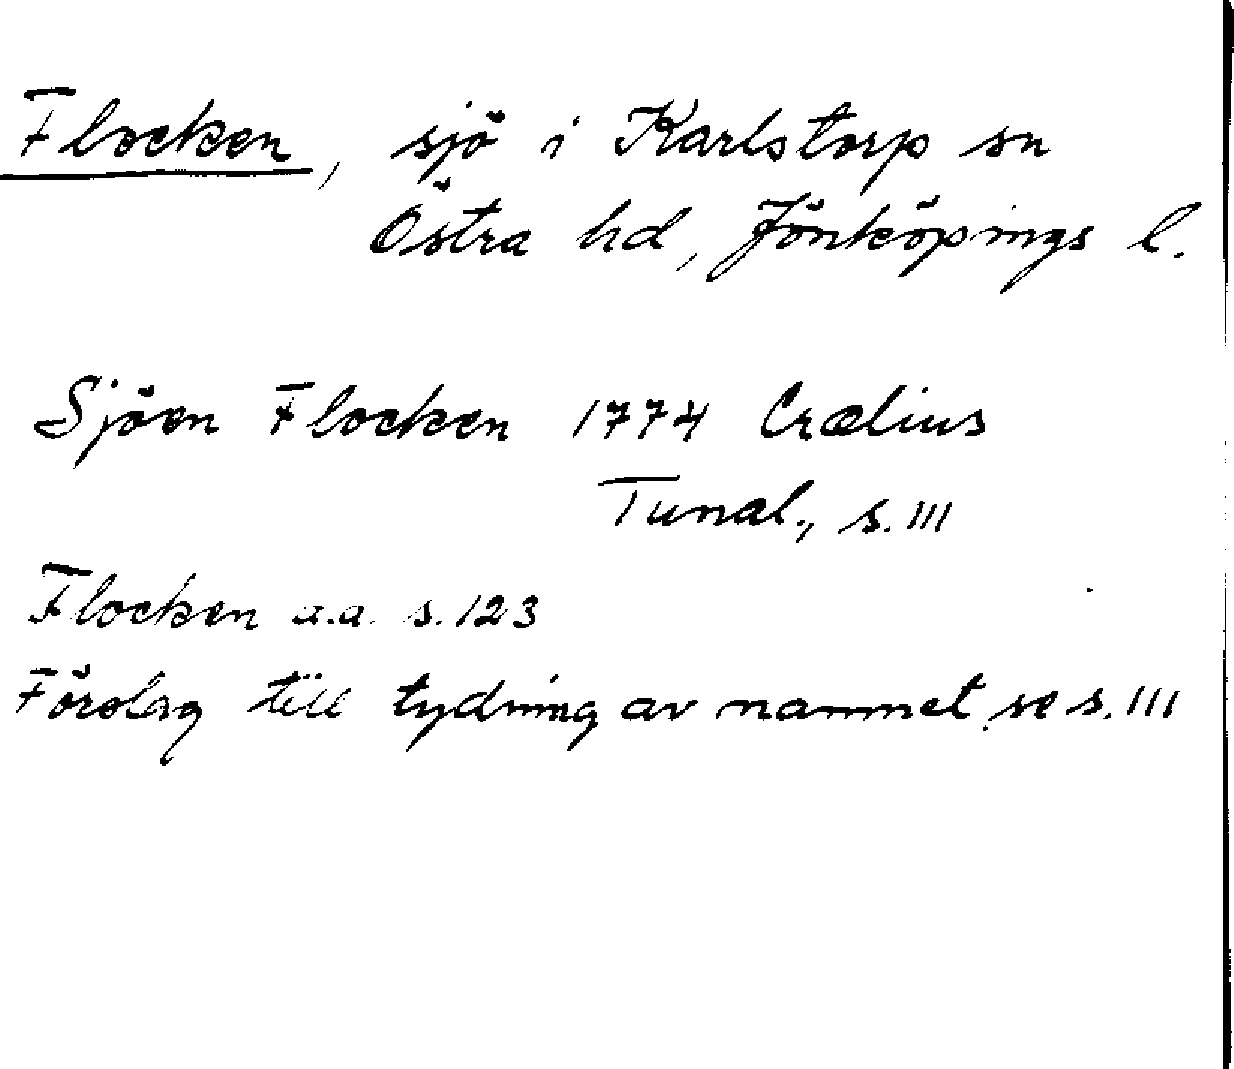 Flocken, sjö i Karlstorp sn
Östra hd, Jönköpings l.
Sjöen Flocken 1774 Crælius
Tunal., s. 111
Flocken a.a. s. 123
Förslag till tydning av namnet se s. 111